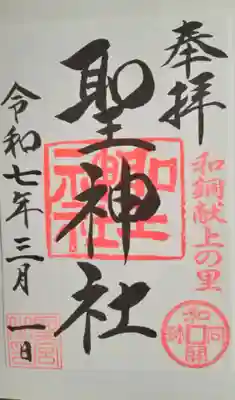 奉拝
和銅献上の里
聖神社
聖神社
和同開珎
令和七年三月一日